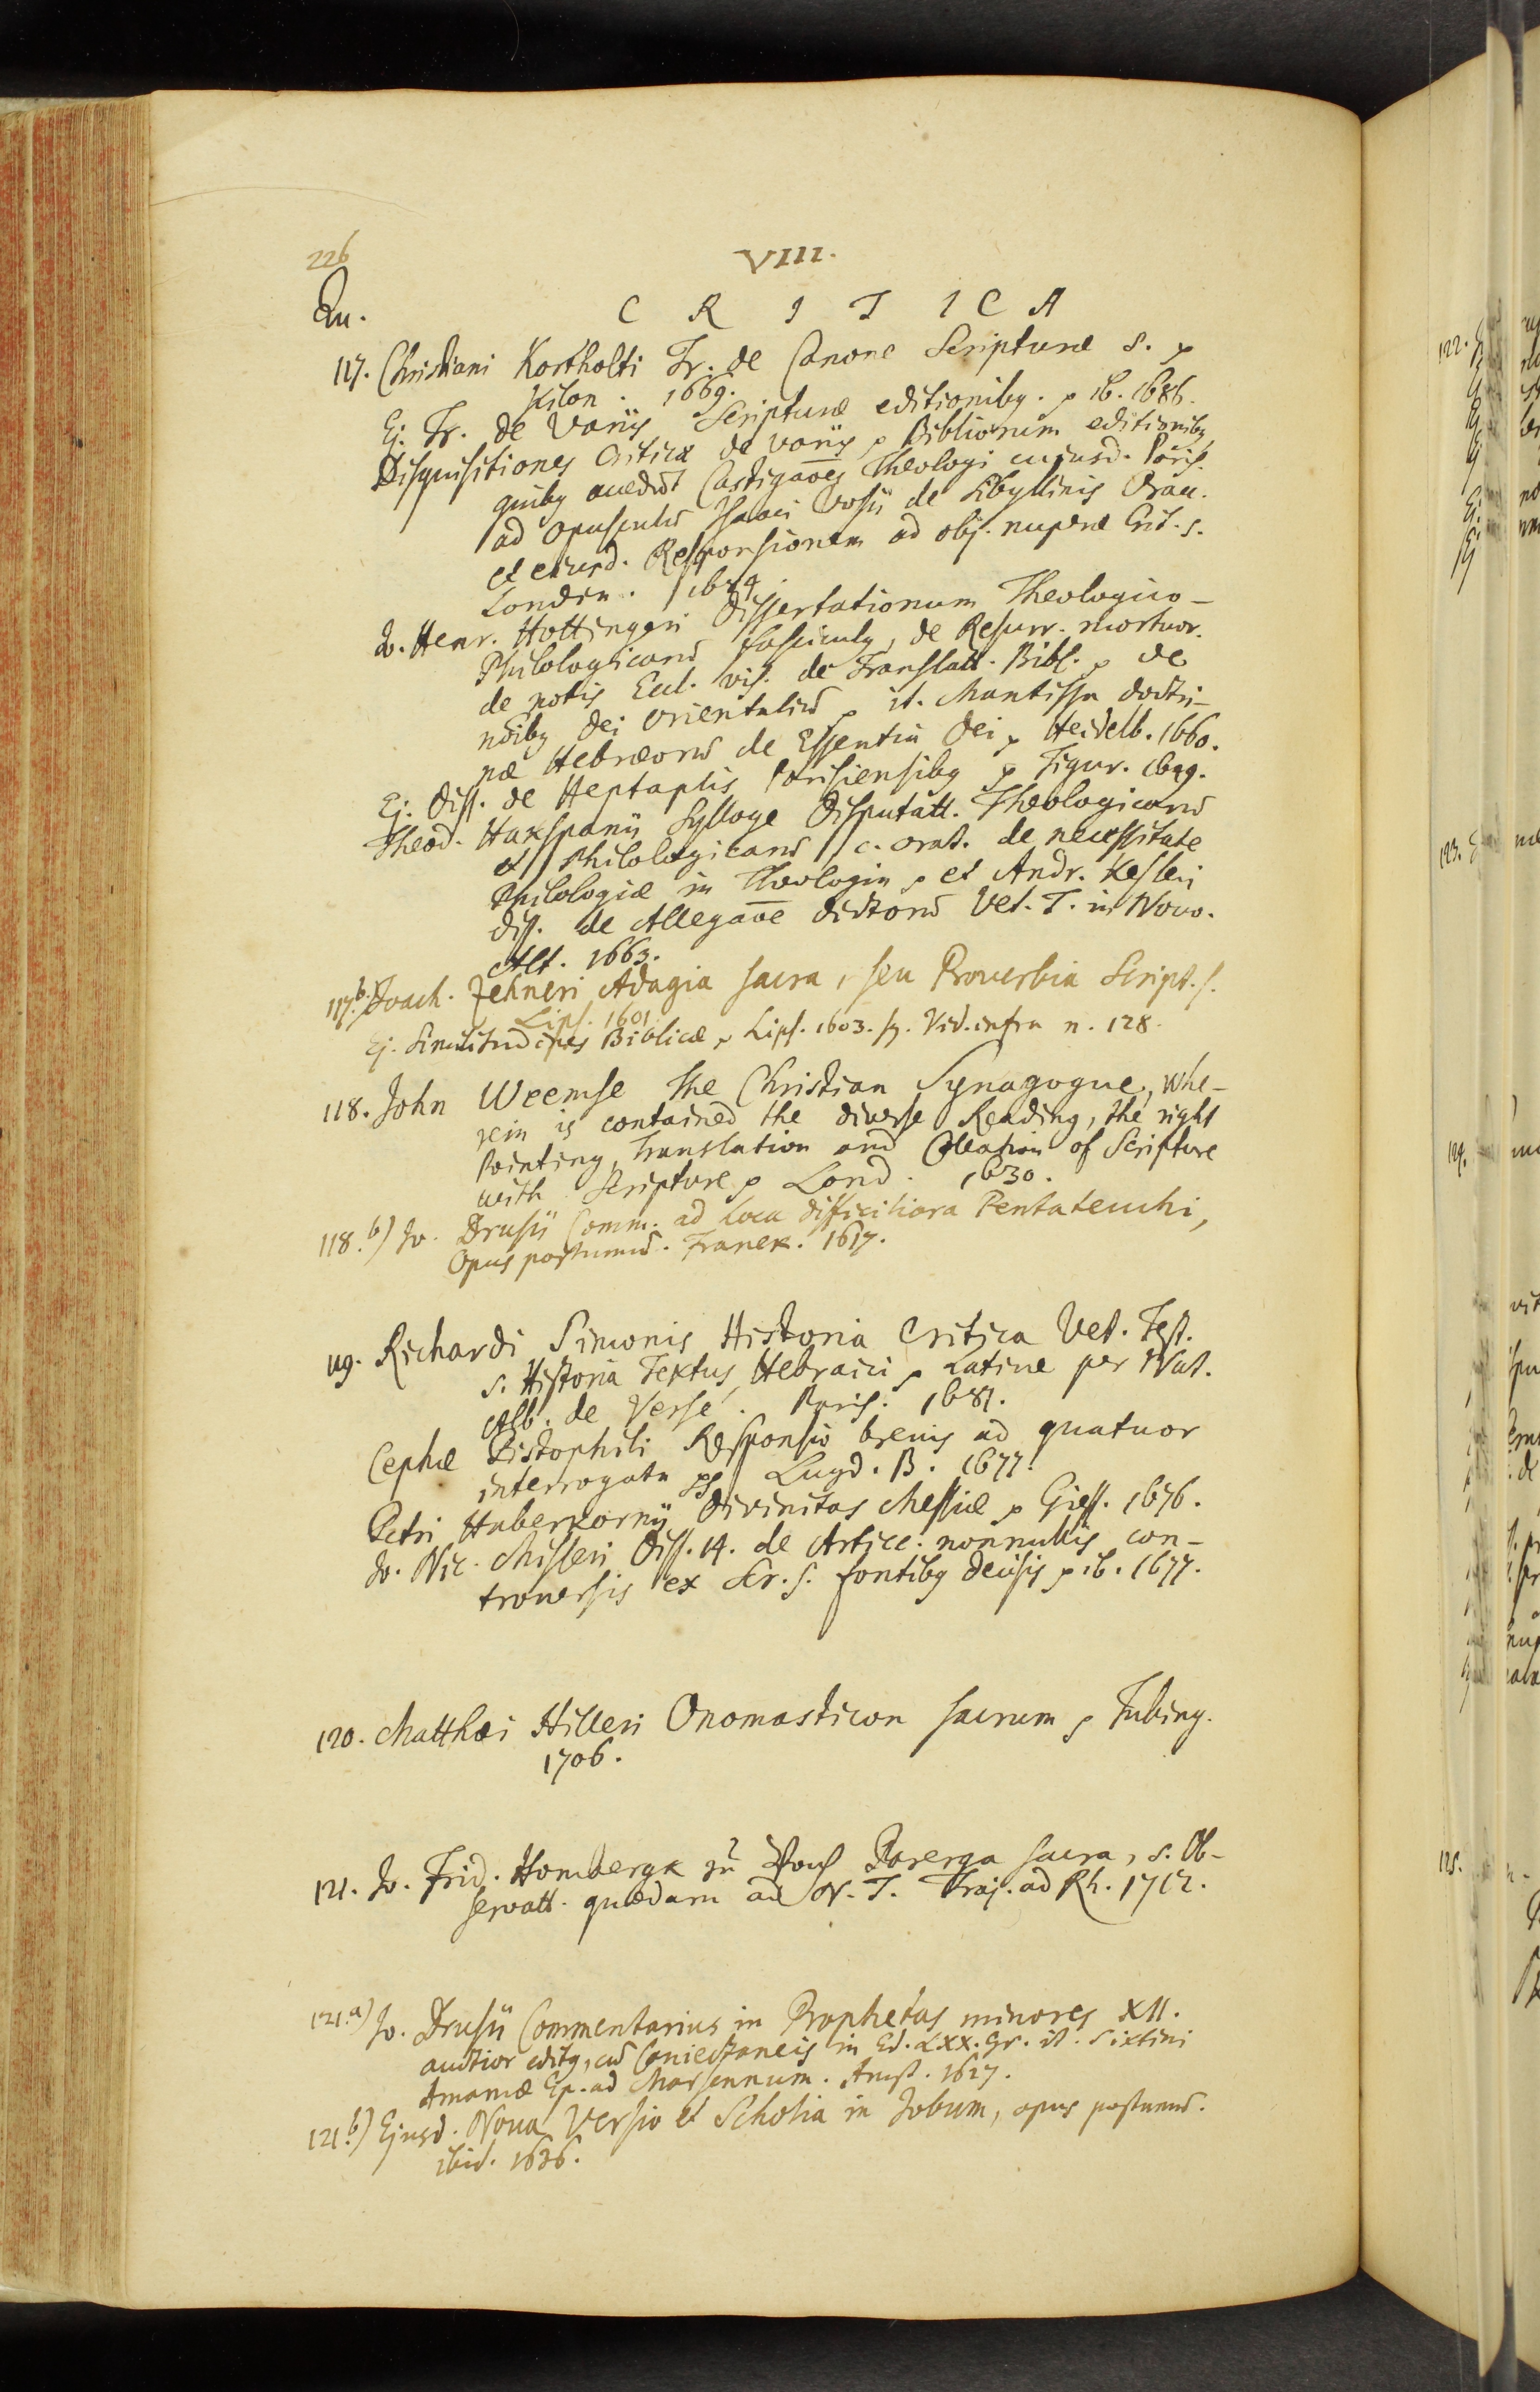 226
VIII.
Qu.
C R I T I C A
117. Christiani Kortholti Tr. de Canone Scripturæ S.
Kilon. 1669.
Ej. Tr. de Variis Scripturæ editionibq. ib. 1686.
Disquisitiones Criticæ de variis Bibliorum editionibq,
quibq accedūt Castigaōes Theologi cujusd. Paris.
ad Opusculū Isaaci Vosii de Sibyllinis Orac.
et eiusd. Responsionem ad obj. nuperæ Crit. s.
Londin. 1684.
Jo. Henr. Hottingeri Dissertationum Theologico-
Philologicarū fasciculq, de Resurr. mortuor.
de notis Eccl. vis. de Translatt. Bibl. de
nōibq Dei Orientaliū it. Mantissa doctri-
næ Hebræorū de Essentia Dei Heidelb. 1660.
Ej. Diss. de Heptaplis Parisiensibq Tigur. 1649.
Theod. Hakspanii Sylloge Disputatt. Theologicarū
et Philologicarū c. orat. de necessitate
Philologiæ in Theologia et Andr. Kesleri
diss. de Allegaōe dictorū Vet. T. in Novo.
Alt. 1663.
117.b) Joach. Zehneri Adagia sacra, seu Proverbia Script. s.
Lips. 1601.
Ej. Similitudines Biblicæ Lips. 1603. Vid. infra n. 128.
118. John Weemse The Christian Synagogue, whe-
rein is contained the diverse Reading, the right
Pointing, Translation and Collation of Scripture
with Scripture Lond. 1630.
118.b) Jo. Drusii Comm. ad Loca difficiliora Pentateuchi,
Opus postumū. Franek. 1617.
119. Richardi Simonis Historia Critica Vet. Test.
s. Historia Textus Hebraici Latine per Nat.
Alb. de Versé. Paris. 1681.
Cephæ Pistophili Responsio brevis ad quatuor
interrogata Lugd. B. 1677.
Petri Haberkornii Divinitas Messiæ Giess. 1676.
Jo. Nic. Misleri Diss. 14. de Articc. nonnullis con-
troversis ex Scr. s. fontibq decisis ib. 1677.
120. Matthæi Hilleri Onomasticon sacrum Tubing.
1706.
121. Jo. Frid. Hombergk zu Vach Parerga sacra, s. Ob-
servatt. quædam ad N. T. Traj. ad Rh. 1712.
121.a) Jo. Drusii Commentarius in Prophetas minores XII.
auctior editq, cū Coniectaneis in Ed. LXX. Gr. it. Sixtini
Amamæ Ep. ad Marsennum. Amst. 1627.
121.b) Ejusd. Nova Versio et Scholia in Jobum, opus postumū.
ibid. 1636.
122.
123.
124.
125.